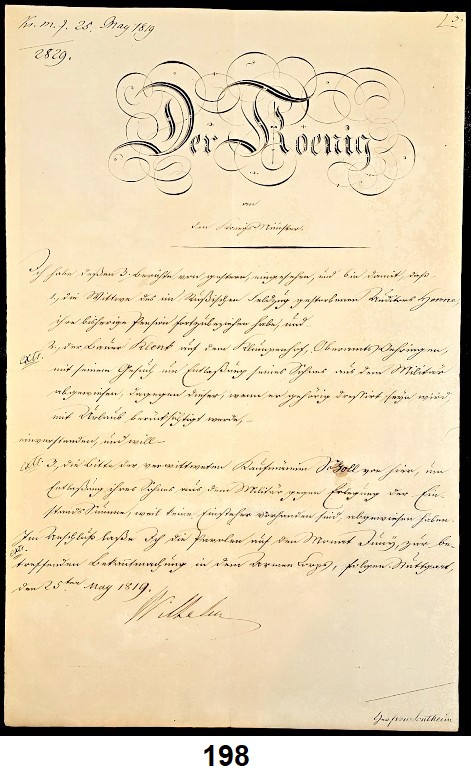 Kr. m. J. 25. May 1819
2829.
Der Koenig
an
den Kriegs Minister.
Ich habe dessen 3. Berichte von gestern, eingesehen, und bin damit, daß
1, die Wittwe des im Russischen Feldzug gestorbenen Auditors Herrne,
ihre bisherige Pension fortzubeziehen habe, und
2, der Bauer Klenk auf dem Oberamts Oehringen,
mit seinem Gesuch um Entlassung seines Sohns aus dem Militär
abgewiesen, dagegen dieser, wenn er gehörig dressirt seyn wird
mit Urlaub berücksichtigt werde,
einverstanden, und will
3, die Bitte der verwittweten Kaufmännin Scholl von hier, um
Entlassung ihres Sohns aus dem Militär gegen Erlegung der Ein-
stands Summe, weil keine Einsteher vorhanden sind, abgewiesen haben.
Im Anschluß lasse Ich die Parolen auf den Monat Juny, zur be-
treffenden Bekanntmachung in dem Armee Corps, folgen. Stuttgart,
den 25ten May 1819.
Wilhelm
198